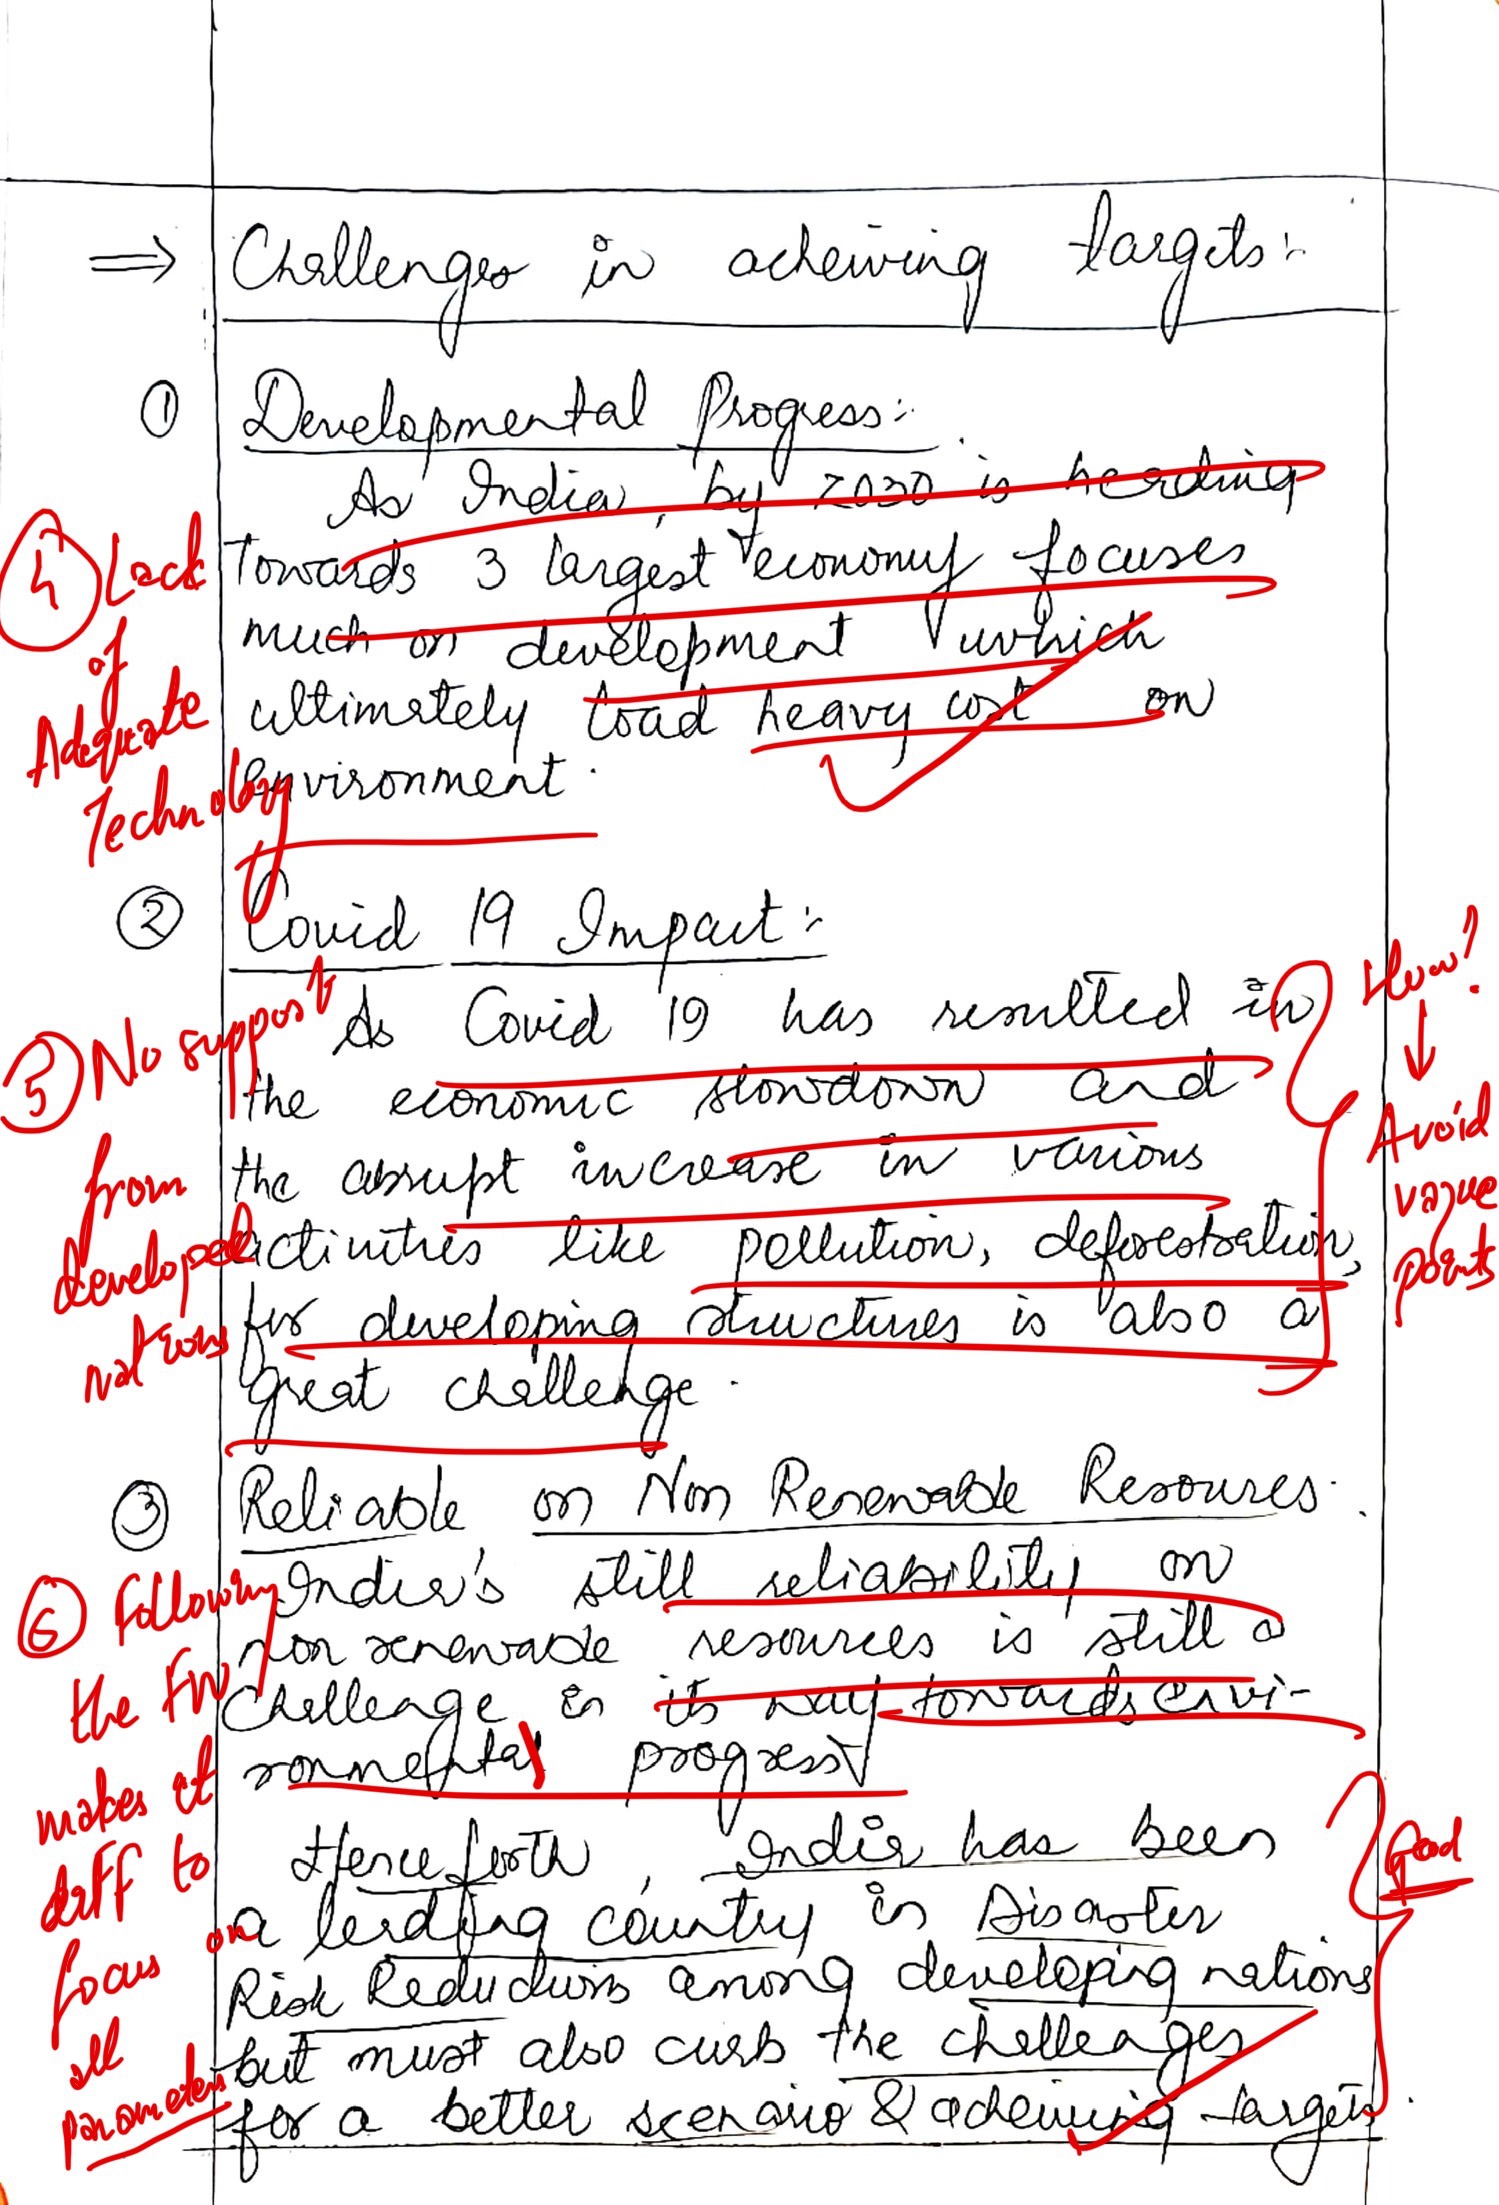 ⇒ Challenges in acheiving targets:
① Developmental Progress:
As India, by 2030 is heading
Towards 3 largest economy focuses
much on development which
ultimately load heavy cost on
environment.
② Covid 19 Impact:
As Covid 19 has resulted in
the economic slowdown and
the abrupt increase in various
activities like pollution, deforestration,
for developing structures is also a
great challenge.
③ Reliable on Non Renewable Resourses.
India's still reliability on
non renewable resources is still a
challenge in its way towards envi-
ronmental progress
Henceforth, India has been
a leading country in Disaster
Risk Reductions among developing nations
but must also curb the challenges
for a better scenario & acheiving targets.
④ Lack
of
Adequate
Technology
⑤ No support
from
developed
nations
⑥ Following
the FW
makes it
diff to
focus on
all
parameters
How?
↓
Avoid
vague
points
Good